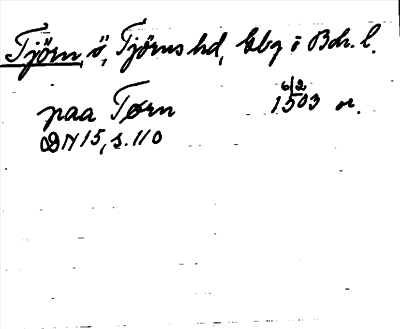 Tjörn, ö, Tjörns hd, Gbg o Boh. l.
paa Tørn 6/2 1503 or.
DN 15, s. 110